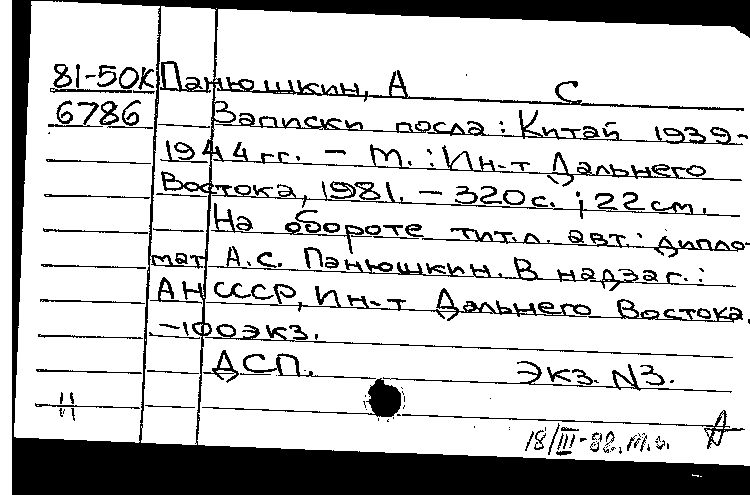 81-50К Панюшкин, А С
6786 Записки посла: Китай 1939-
1944гг. – М.: Ин-т Дальнего
Востока, 1981. – 320с.; 22см.
На обороте тит.л. авт.: дипло-
мат А.С. Панюшкин. В надзаг.:
АН СССР, Ин-т Дальнего Востока.
–100экз.
ДСП. Экз. N3.
18/III-82.